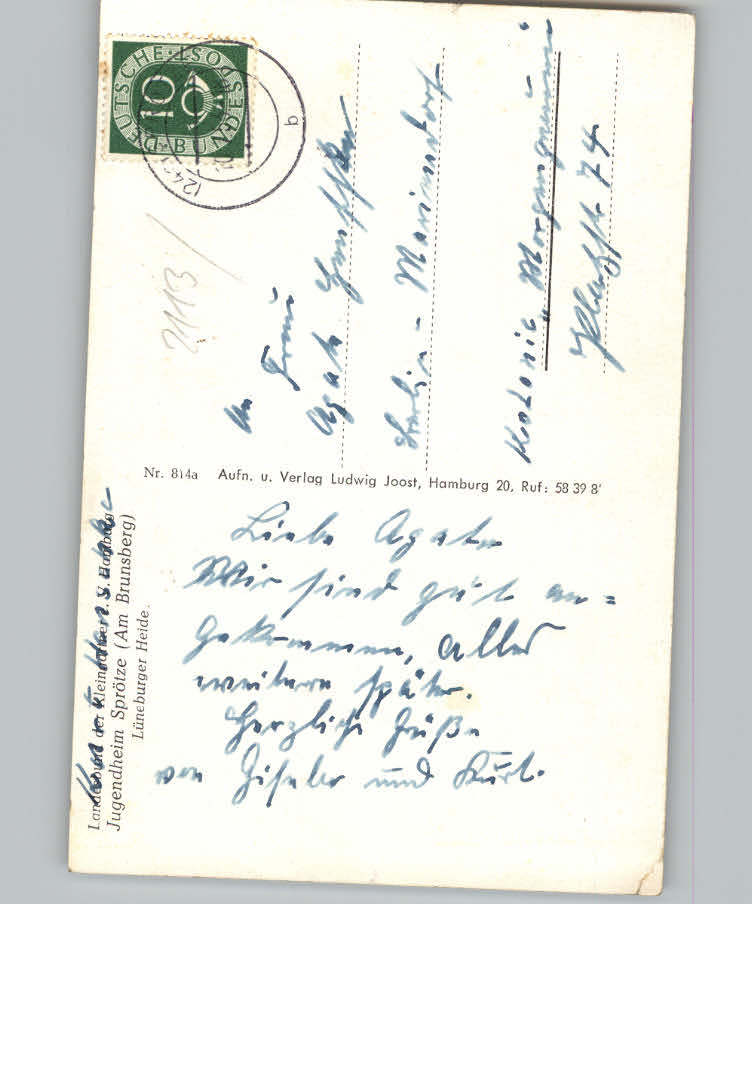 DEUTSCHE BUNDESPOST
10
b
2113
An
Frau
Agate
Berlin - Mariendorf
Kolonie „Morgengrauen"
74
Nr. 814a Aufn. u. Verlag Ludwig Joost, Hamburg 20, Ruf: 58 39 8
Landesbund der Kleingärtner e. V. Hamburg
Jugendheim Sprötze (Am Brunsberg)
Lüneburger Heide.
Kurt
Liebe Agate
Wir sind gut an=
gekommen, alles
weitere später.
Herzliche Grüße
von Gisela und Kurt.